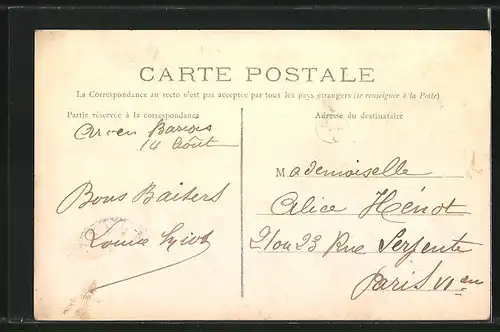 CARTE POSTALE
La Correspondance au recto n'est pas acceptée par tous les pays étrangers (se renseigner à la Poste)
Partie réservée à la correspondance
Arc-en Barrois
14 Août
Bons Baisers
Louise
Adresse du destinataire
Mademoiselle
Alice Hénot
21 ou 23 Rue Serpente
Paris VI en